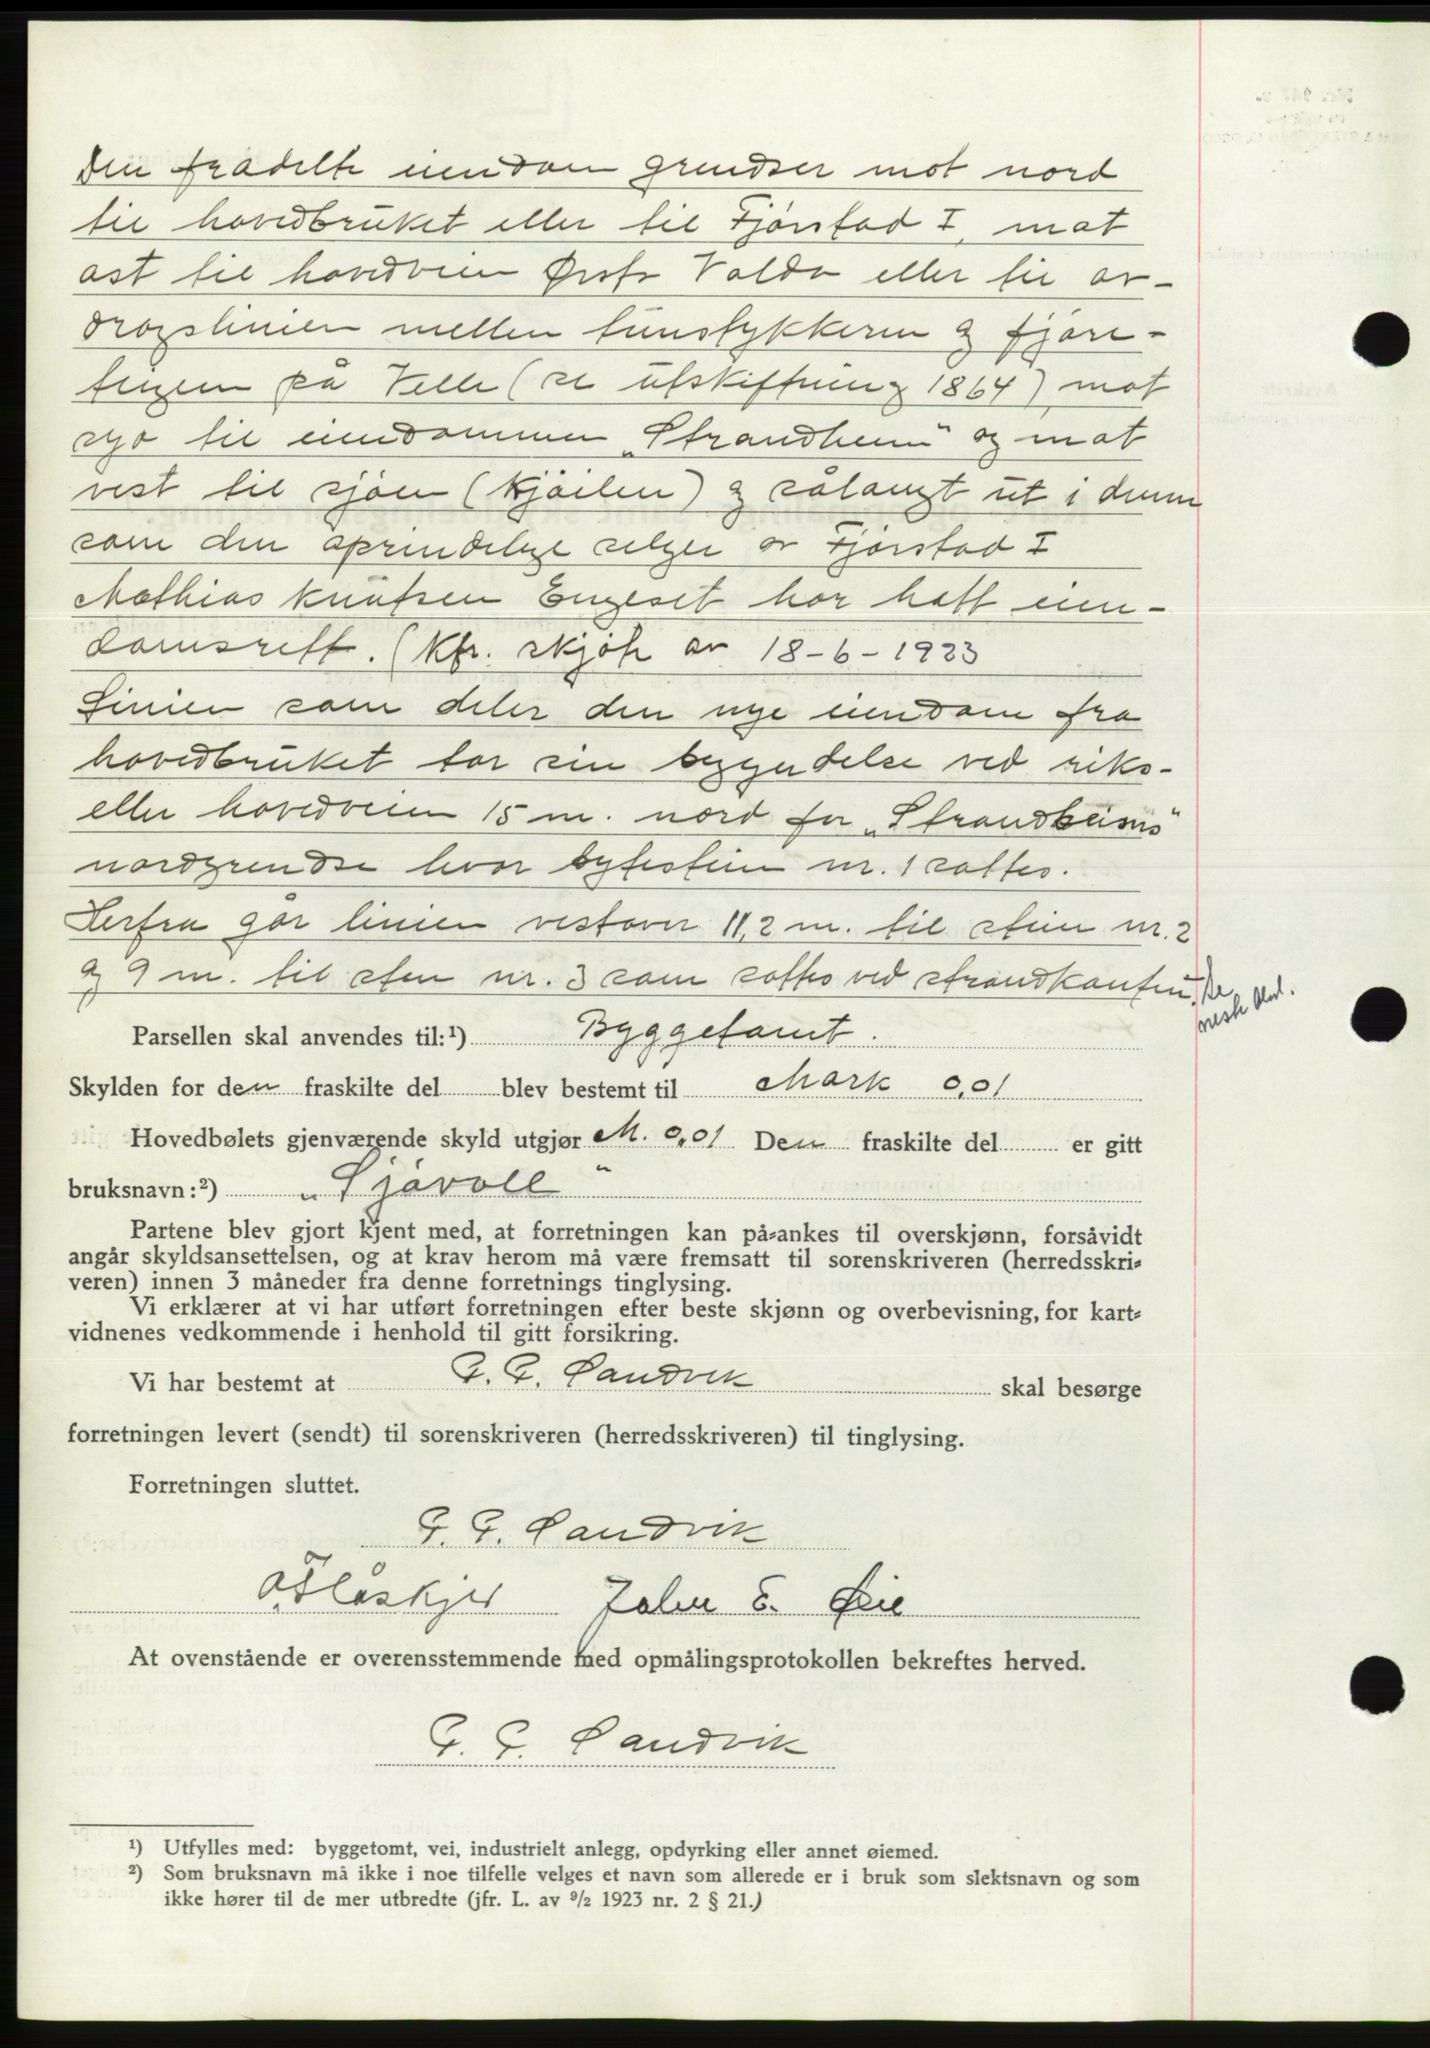 Den fradelte eiendom grendser mot nord
til hovedbruket eller til Fjørstad I, mot
øst til hovedveien Ørsta Volda eller til av-
dragslinien mellem tunstykkerne og fjøre-
teigen på Velle (se utskiftning 1864) mot
syd til eiendommen „Strandheim" og mot
vest til sjøen (Kjøilen) og sålangt ut i denne
som den oprindelige selger av Fjørstad I
Mathias Knutsen Engeset har hatt eien-
domsrett. (Kfr. skjøte av 18-6-1923
Linien som deler den nye eiendom fra
hovedbruket tar sin begyndelse ved riks-
eller hovedveien 15 m. nord for „Strandheims"
nordgrendse hvor bytestein nr. 1 sattes.
Herfra går linien vestover 11,2 m. til stein nr. 2
og 9 m. til sten nr. 3 som sattes ved strandkanten. Se
neste blad.
Parsellen skal anvendes til:¹) Byggetomt.
Skylden for den fraskilte del blev bestemt til Mark 0,01
Hovedbølets gjenværende skyld utgjør M. 0,01 Den fraskilte del er gitt
bruksnavn:²) „Sjøvoll"
Partene blev gjort kjent med, at forretningen kan på-ankes til overskjønn, forsåvidt
angår skyldsansettelsen, og at krav herom må være fremsatt til sorenskriveren (herredsskri-
veren) innen 3 måneder fra denne forretnings tinglysing.
Vi erklærer at vi har utført forretningen efter beste skjønn og overbevisning, for kart-
vidnenes vedkommende i henhold til gitt forsikring.
Vi har bestemt at G. G. Sandvik skal besørge
forretningen levert (sendt) til sorenskriveren (herredsskriveren) til tinglysing.
Forretningen sluttet.
G. G. Sandvik
O. Flåskjer John E. Øie
At ovenstående er overensstemmende med opmålingsprotokollen bekreftes herved.
G. G. Sandvik
¹) Utfylles med: byggetomt, vei, industrielt anlegg, opdyrking eller annet øiemed.
²) Som bruksnavn må ikke i noe tilfelle velges et navn som allerede er i bruk som slektsnavn og som
ikke hører til de mer utbredte (jfr. L. av ⁹/₂ 1923 nr. 2 § 21.)